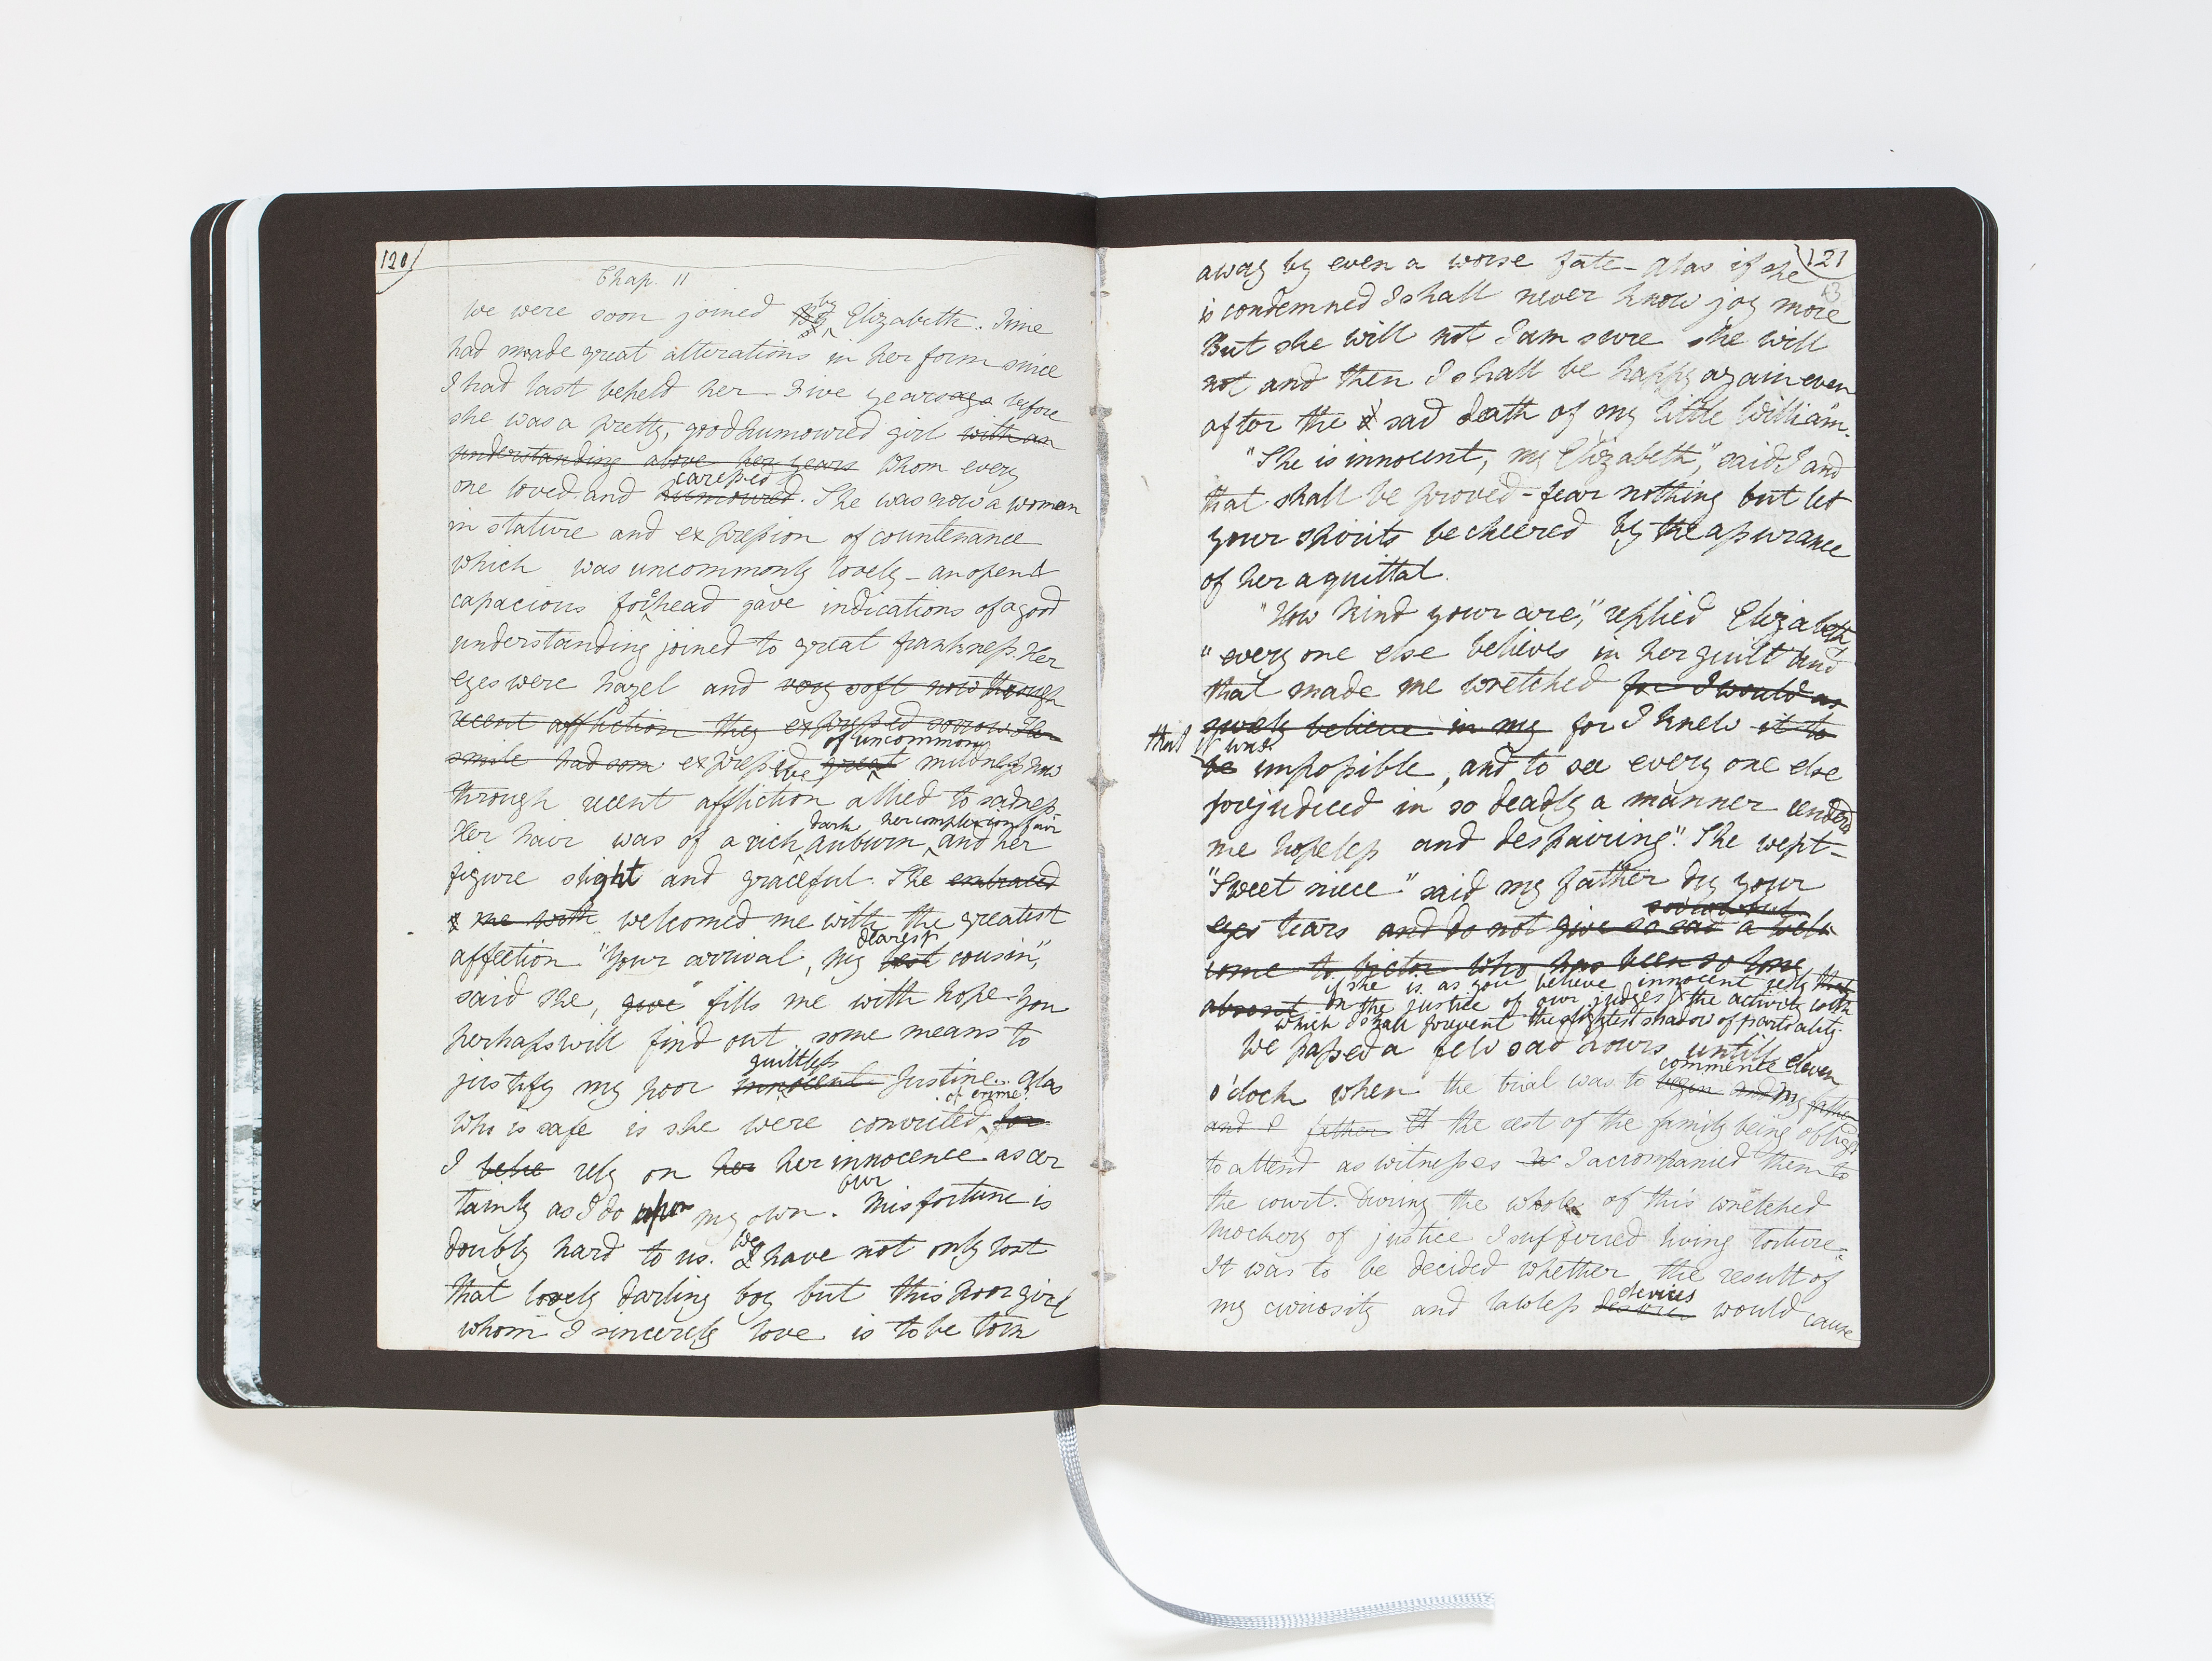 120
Chap. 11
We were soon joined by Elizabeth. Time
had made great alterations in her form since
I had last beheld her - Five years ago before
she was a pretty, good humoured girl with an
understanding above her years whom every
caressed
one loved and humoured. She was now a woman
in stature and expression of countenance
which was uncommonly lovely - an open &
capacious forehead gave indications of a good
understanding joined to great frankness. Her
eyes were hazel and very soft now through
recent affliction they expressed sorrow Her
of uncommon
smile had som expressive great mildness now
through recent affliction allied to sadness
dark her complexion fair
Her hair was of a rich auburn and her
figure slight and graceful. She embraced
me with welcomed me with the greatest
dearest
affection "Your arrival, my best cousin,"
said she, give "fills me with hope - You
perhaps will find out some means to
guiltless
justify my poor innocent Justine. Alas
of crime?
who is safe is she were convicted for
I belie rely on her her innocence as cer
our
tainly as I do upon my own. Misfortune is
we
doubly hard to us. I have not only lost
that lovely darling boy but this poor girl
whom I sincerely love is to be torn
121
away by even a worse fate - Alas if she
is condemned I shall never know joy more
But she will not I am sure she will
not and then I shall be happy again even
after the sad death of my little William."
"She is innocent, my Elizabeth," said I and
that shall be proved - fear nothing but let
your spirits be cheered by the assurance
of her aquittal.
"How kind your are," replied Elizabeth
"every one else believes in her guilt and
that made me wretched for I would as
soon believe in my for I knew it to
that it was
be impossible, and to see every one else
prejudiced in so deadly a manner rendered
me hopeless and despairing." She wept -
"Sweet niece" said my father dry your
eyes tears and do not give so sad a wel
come to Victor who has been so long
if she is as you believe innocent rely
absent on the justice of our judges & the activity with
which I shall prevent the slightest shadow of partiality.
We passed a few sad hours untill eleven
commence
o'clock when the trial was to begin and my father
and I father & the rest of the family being obliged
to attend as witnesses I accompanied them to
the court. During the whole of this wretched
mockery of justice I suffered living torture -
It was to be decided whether the result of
devices
my curiosity and lawless desire would cause